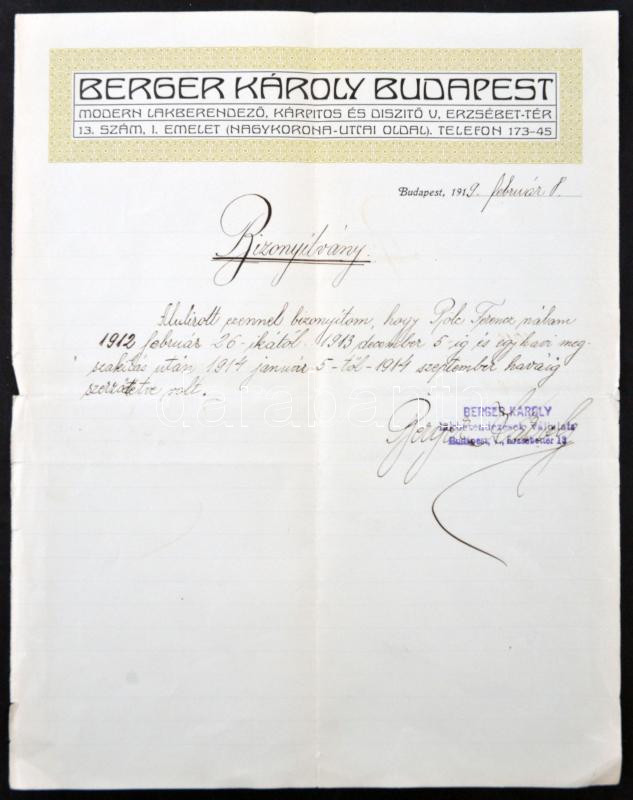 BERGER KÁROLY BUDAPEST
MODERN LAKBERENDEZŐ, KÁRPITOS ÉS DISZITŐ V, ERZSÉBET-TÉR
13. SZÁM, I. EMELET (NAGYKORONA-UTCAI OLDAL). TELEFON 173-45
Budapest, 1919. február 8.
Bizonyítvány.
Alulirott ezennel bizonyitom, hogy Polc Ferenc nálam
1912 február 26-ikától 1913 december 5-ig és egy havi meg-
szakitás után 1914 január 5-től - 1914 szeptember haváig
szerződtetve volt.
darabanth
Berger Károly
BERGER KÁROLY
lakberendezések vállalata
Budapest, V., Erzsébet-tér 13